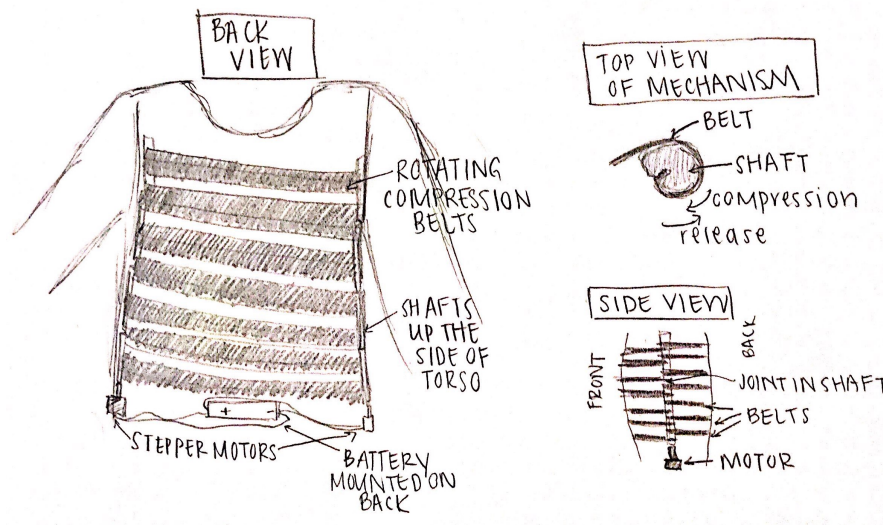 BACK
VIEW
ROTATING
COMPRESSION
BELTS
SHAFTS
UP THE
SIDE OF
TORSO
+ -
STEPPER MOTORS
BATTERY
MOUNTED ON
BACK
TOP VIEW
OF MECHANISM
BELT
SHAFT
compression
release
SIDE VIEW
FRONT
BACK
JOINT IN SHAFT
BELTS
MOTOR